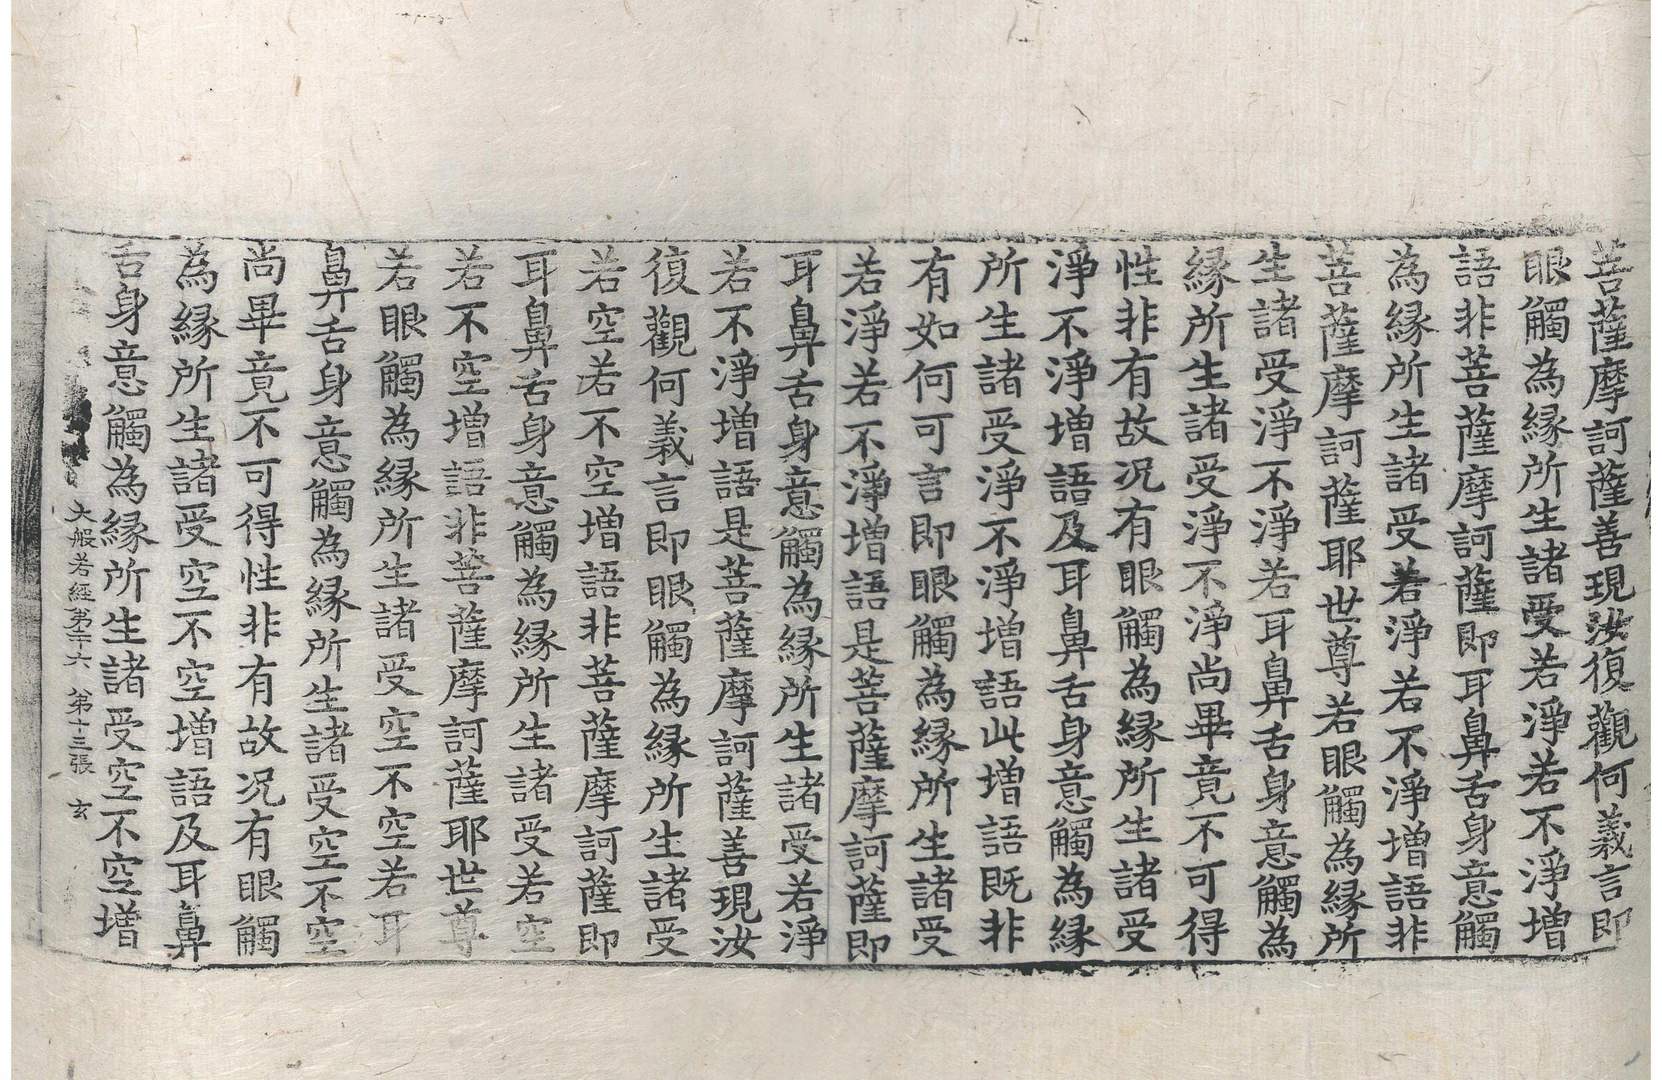 菩薩摩訶薩善現汝復觀何義言即
眼觸為緣所生諸受若淨若不淨增
語非菩薩摩訶薩即耳鼻舌身意觸
為緣所生諸受若淨若不淨增語非
菩薩摩訶薩耶世尊若眼觸為緣所
生諸受淨不淨若耳鼻舌身意觸為
緣所生諸受淨不淨尚畢竟不可得
性非有故况有眼觸為緣所生諸受
淨不淨增語及耳鼻舌身意觸為緣
所生諸受淨不淨增語此增語既非
有如何可言即眼觸為緣所生諸受
若淨若不淨增語是菩薩摩訶薩即
耳鼻舌身意觸為緣所生諸受若淨
若不淨增語是菩薩摩訶薩善現汝
復觀何義言即眼觸為緣所生諸受
若空若不空增語非菩薩摩訶薩即
耳鼻舌身意觸為緣所生諸受若空
若不空增語非菩薩摩訶薩耶世尊
若眼觸為緣所生諸受空不空若耳
鼻舌身意觸為緣所生諸受空不空
尚畢竟不可得性非有故况有眼觸
為緣所生諸受空不空增語及耳鼻
舌身意觸為緣所生諸受空不空增
大般若經第卄六 第十三張 玄